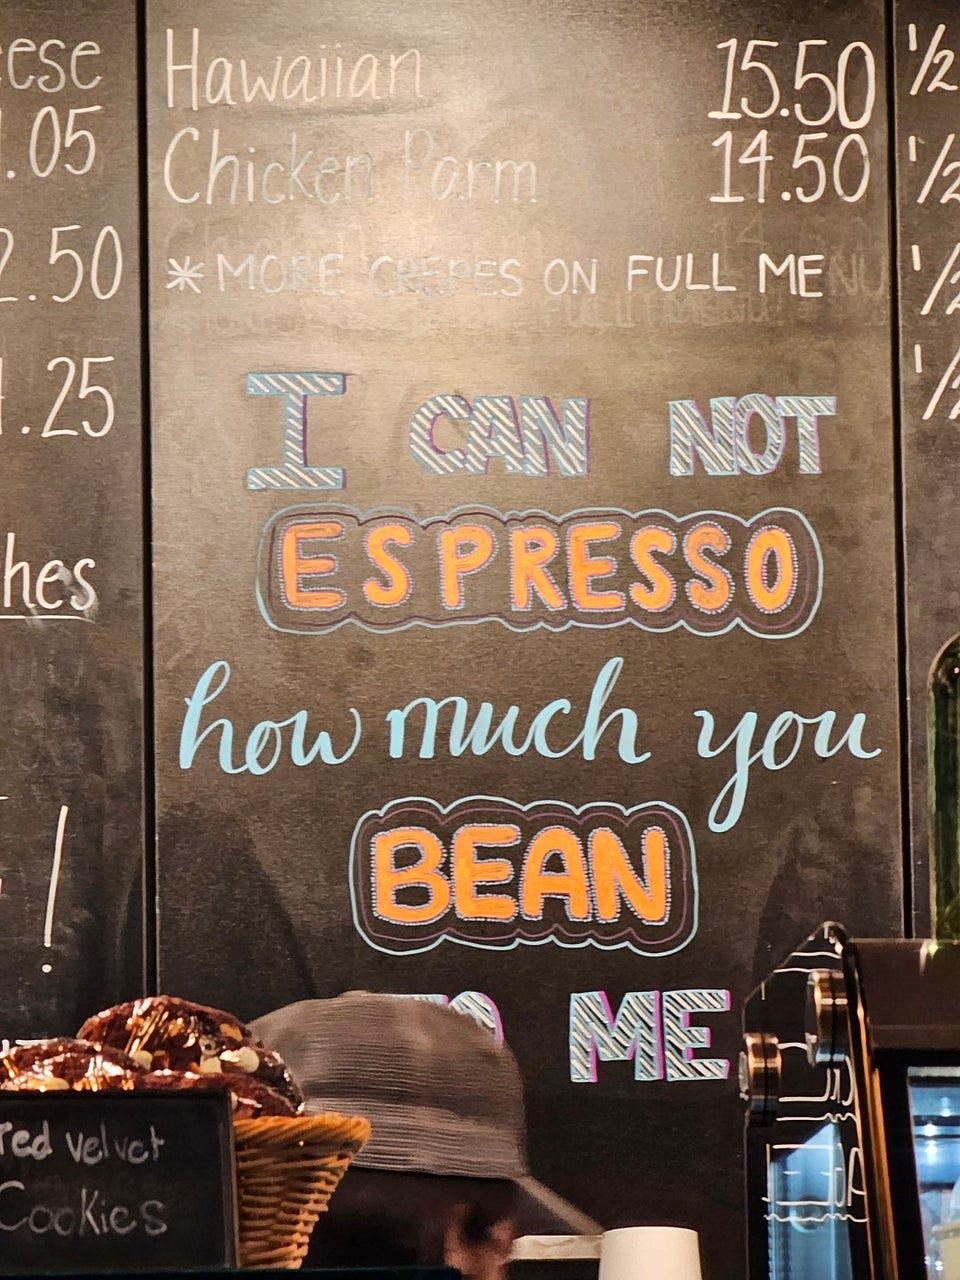 Hawaiian 15.50
Chicken Parm 14.50
*MORE CREPES ON FULL MENU
I CAN NOT
ESPRESSO
how much you
BEAN
TO ME
.05
.50
.25
!
1/2
1/2
1/2
red velvet
Cookies